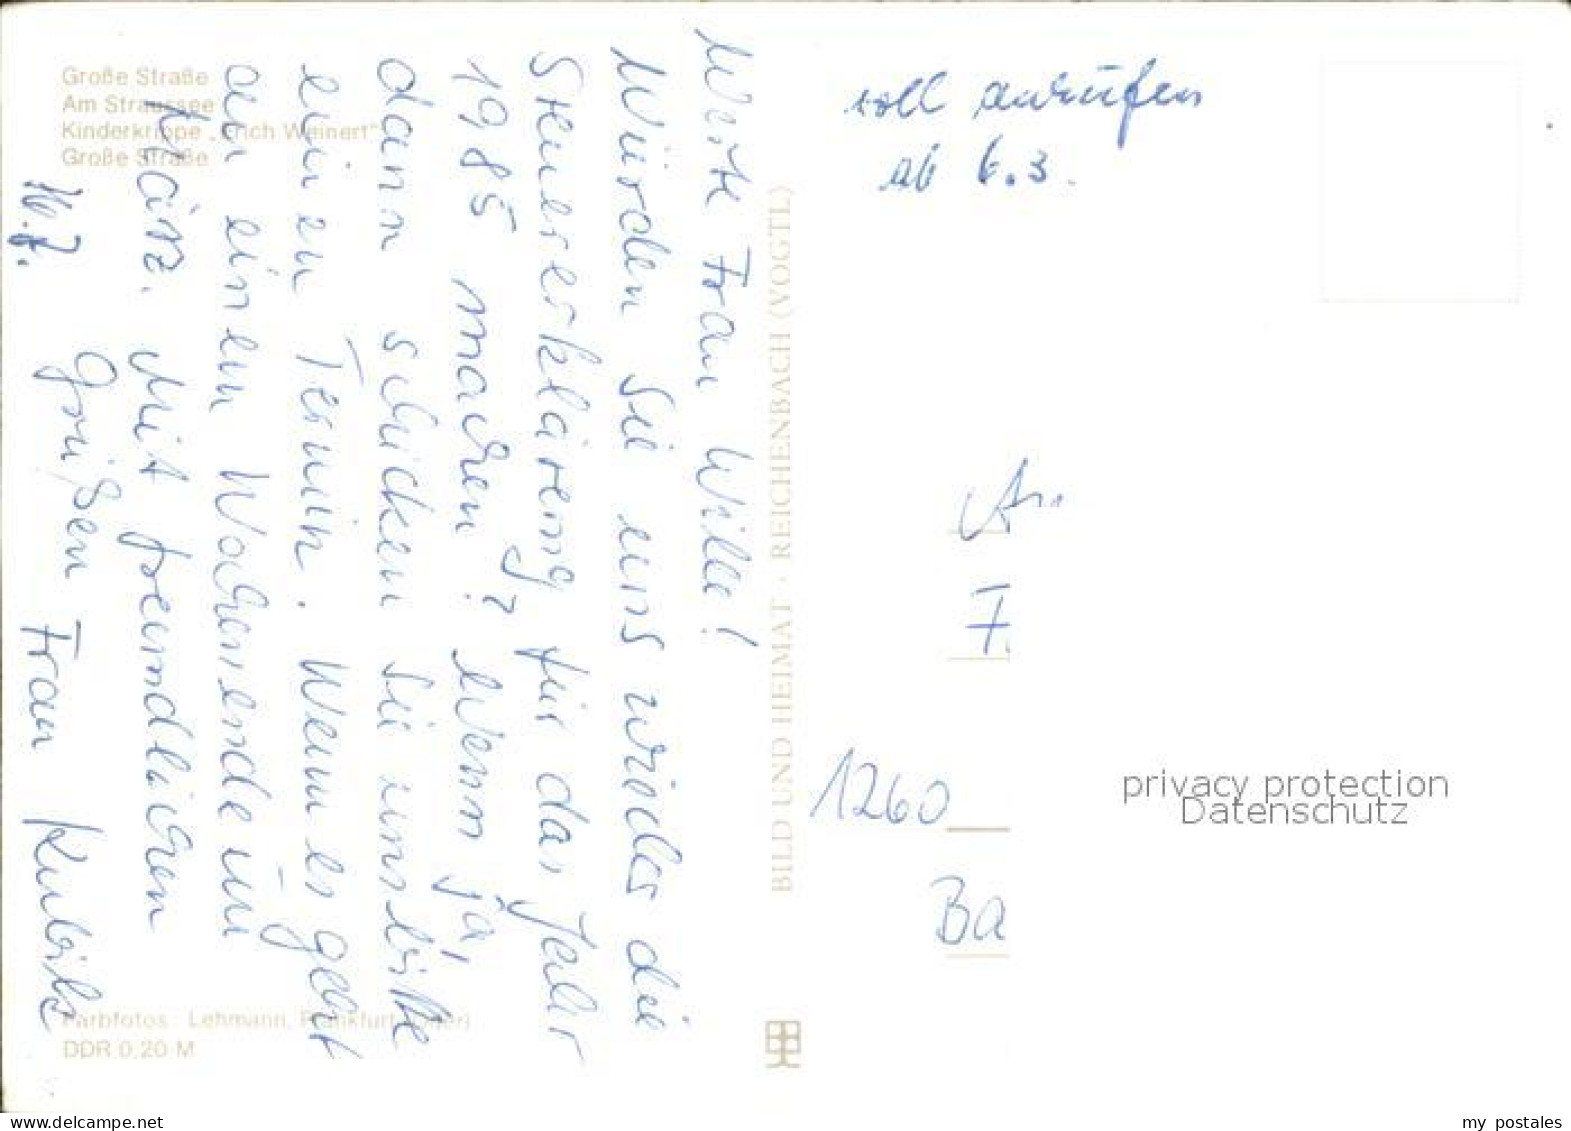 Große Straße
Am Straussee
Kinderkrippe „Erich Weinert"
Große Straße
Werte Frau Wille!
Würden Sie uns wieder die
Steuererklärung für das Jahr
1985 machen? Wenn ja,
dann schicken Sie uns bitte
einen Termin. Wenn es geht
an einem Wochenende im
März. Mit freundlichen
Grüßen Frau Kubitz
Farbfotos: Lehmann, Frankfurt (Oder)
DDR 0,20 M
BILD UND HEIMAT · REICHENBACH (VOGTL)
soll anrufen
ab 6.3.
An
F
1260
Ba
privacy protection
Datenschutz
my postales